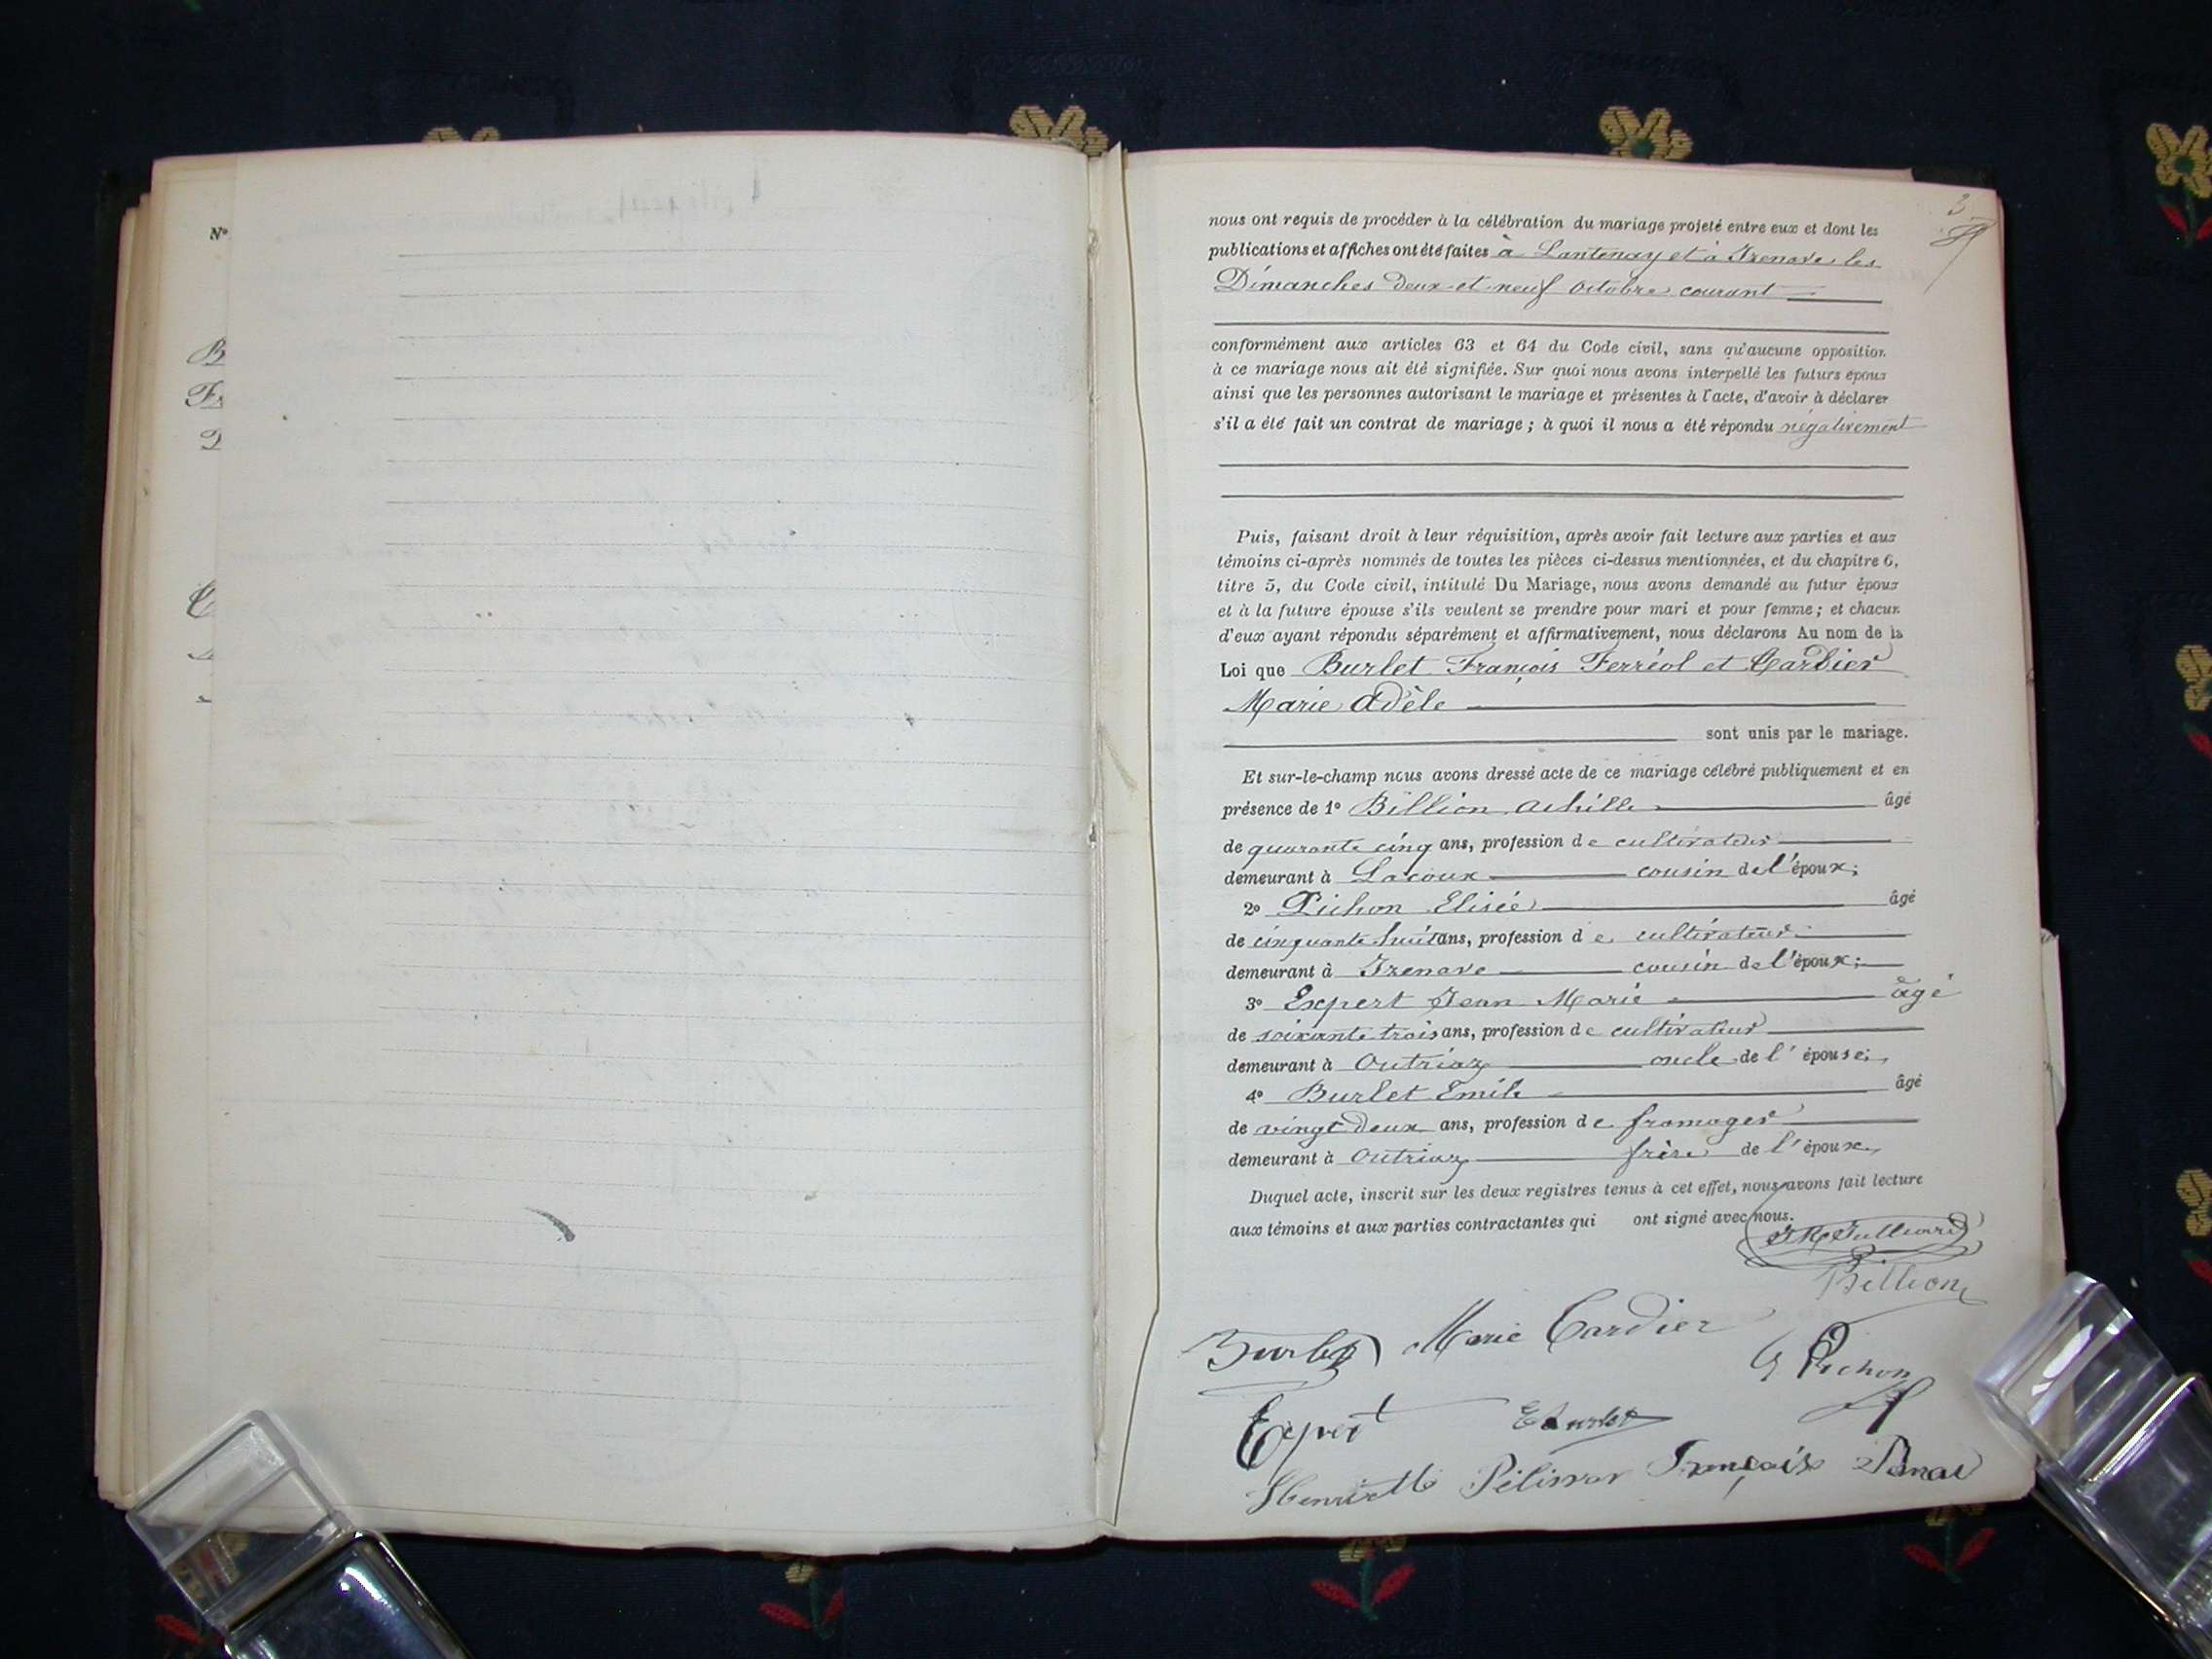 N°
B
nous ont requis de procéder à la célébration du mariage projeté entre eux et dont les
publications et affiches ont été faites à Lantenay et à Izenave les
Dimanches deux et neuf octobre courant
conformément aux articles 63 et 64 du Code civil, sans qu'aucune opposition
à ce mariage nous ait été signifiée. Sur quoi nous avons interpellé les futurs époux
ainsi que les personnes autorisant le mariage et présentes à l'acte, d'avoir à déclarer
s'il a été fait un contrat de mariage ; à quoi il nous a été répondu négativement
Puis, faisant droit à leur réquisition, après avoir fait lecture aux parties et aux
témoins ci-après nommés de toutes les pièces ci-dessus mentionnées, et du chapitre 6,
titre 5, du Code civil, intitulé Du Mariage, nous avons demandé au futur époux
et à la future épouse s'ils veulent se prendre pour mari et pour femme ; et chacun
d'eux ayant répondu séparément et affirmativement, nous déclarons Au nom de la
Loi que Burlet François Ferréol et Cardier
Marie Adèle
sont unis par le mariage.
Et sur-le-champ nous avons dressé acte de ce mariage célébré publiquement et en
présence de 1° Billion Achille âgé
de quarante cinq ans, profession de cultivateur
demeurant à Lacoux cousin de l'époux ;
2° Pichon Elisée âgé
de cinquante huit ans, profession de cultivateur
demeurant à Izenave cousin de l'époux ;
3° Expert Jean Marie âgé
de soixante trois ans, profession de cultivateur
demeurant à Outriaz oncle de l'épouse ;
4° Burlet Emile âgé
de vingt deux ans, profession de fromager
demeurant à Outriaz frère de l'époux
Duquel acte, inscrit sur les deux registres tenus à cet effet, nous avons fait lecture
aux témoins et aux parties contractantes qui ont signé avec nous.
Billion
Burlet Marie Cardier
E Pichon
Expert E Burlet
François